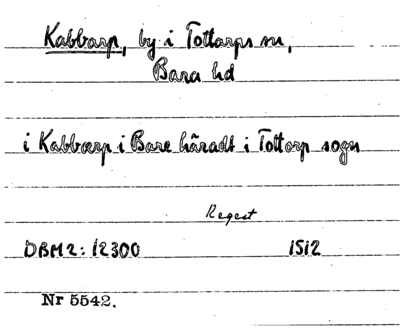 Kabbarp, by i Tottarps sn,
Bara hd
i Kabbarp i Bare häradt i Tottorp sogn
Regest
DBM2: 12300 1512
Nr 5542.